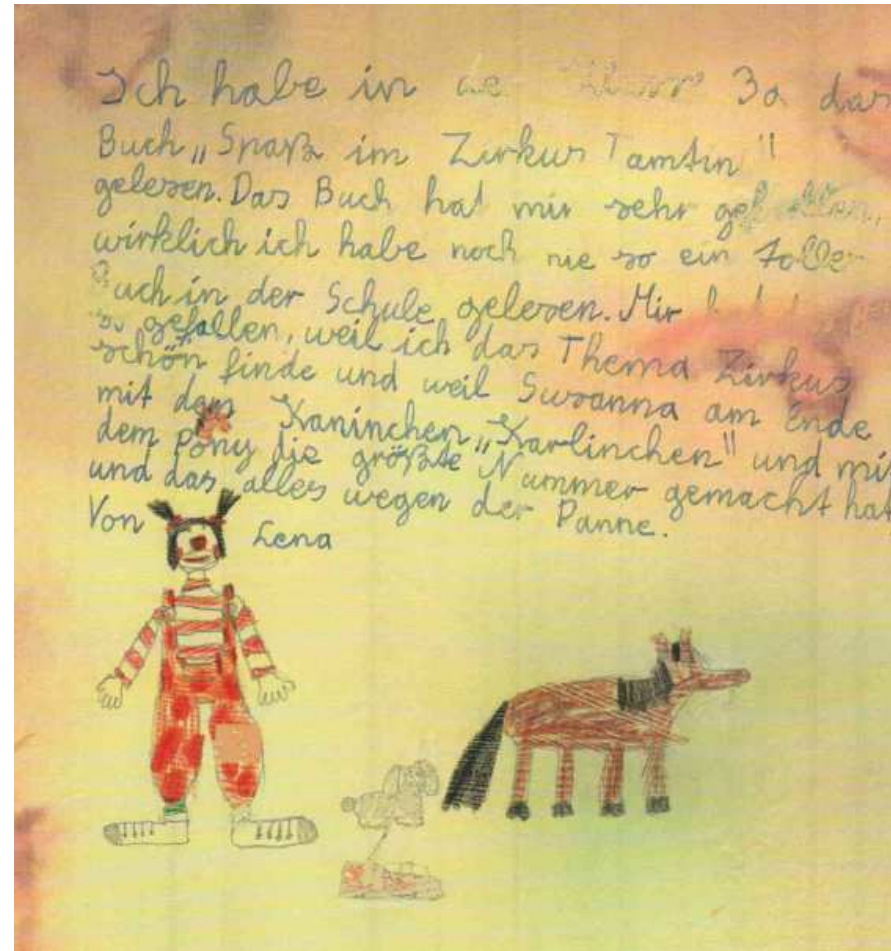 Ich habe in 3a das
Buch „Spaß im Zirkus Tamtin"
gelesen. Das Buch hat mir sehr gefallen,
wirklich ich habe noch nie so ein tolles
Buch in der Schule gelesen. Mir
so gefallen, weil ich das Thema Zirkus
schön finde und weil Susanna am Ende
mit dem Kaninchen „Karlinchen" und mit
dem Pony die größte Nummer gemacht hat
und das alles wegen der Panne.
Von Lena